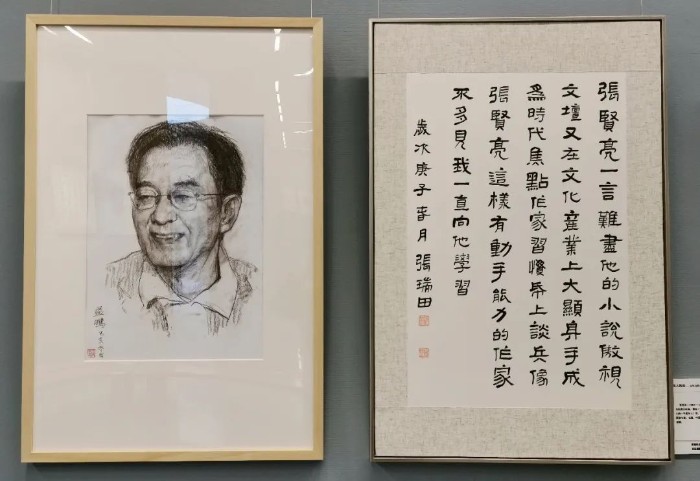 張賢亮一言難盡他的小說傲視
文壇又在文化產業上大顯身手成
為時代焦點作家習慣帋上談兵像
張賢亮這樣有動手能力的作家
不多見我一直向他學習
歲次庚子月張瑞田